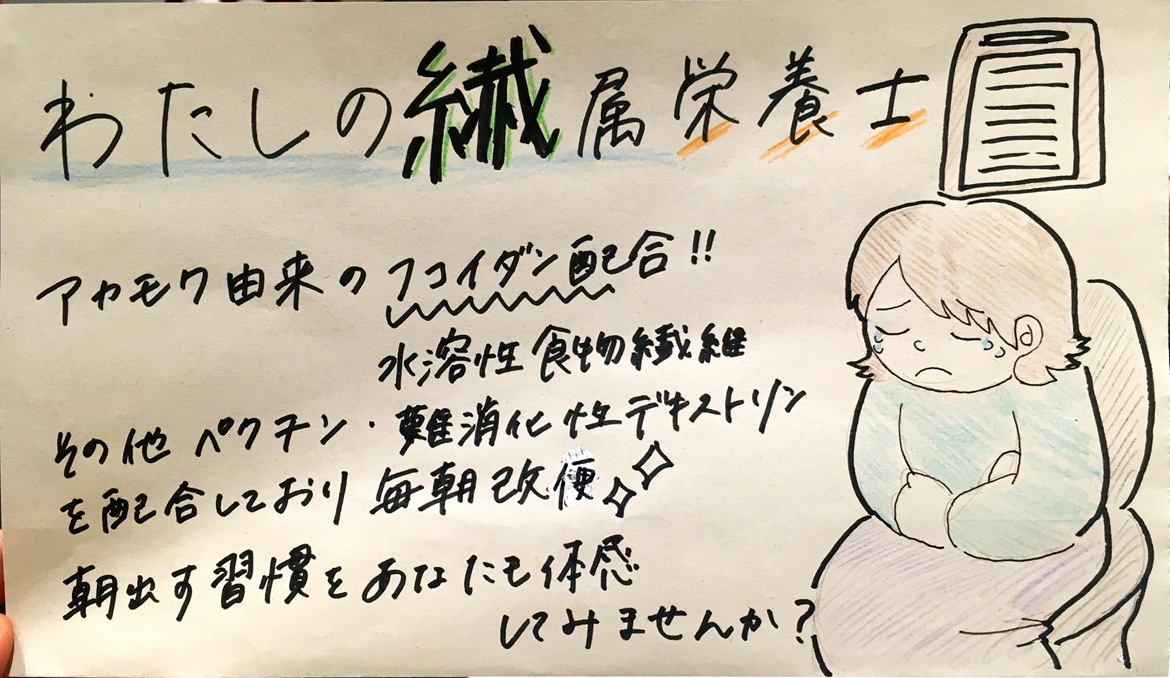 わたしの繊属栄養士
アカモク由来のフコイダン配合!!
水溶性食物繊維
その他 ペクチン・難消化性デキストリン
を配合しており 毎朝改便
朝出す習慣をあなたも体感
してみませんか？